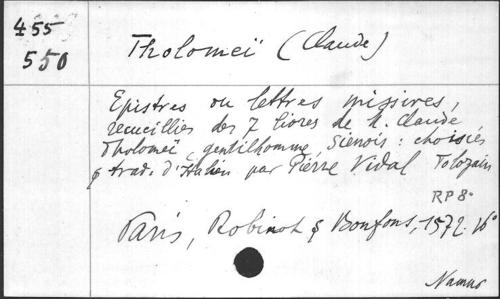 455
550
Tholomeï (Claude)
Epistres ou lettres missives,
recueillies des 7 livres de M. Claude
Tholomeï, gentilhomme Sienois : choisies
& trad. d'Italien par Pierre Vidal Tolozain
RP 8°
Paris, Robinot & Bonfons, 1572. 16°
Namur